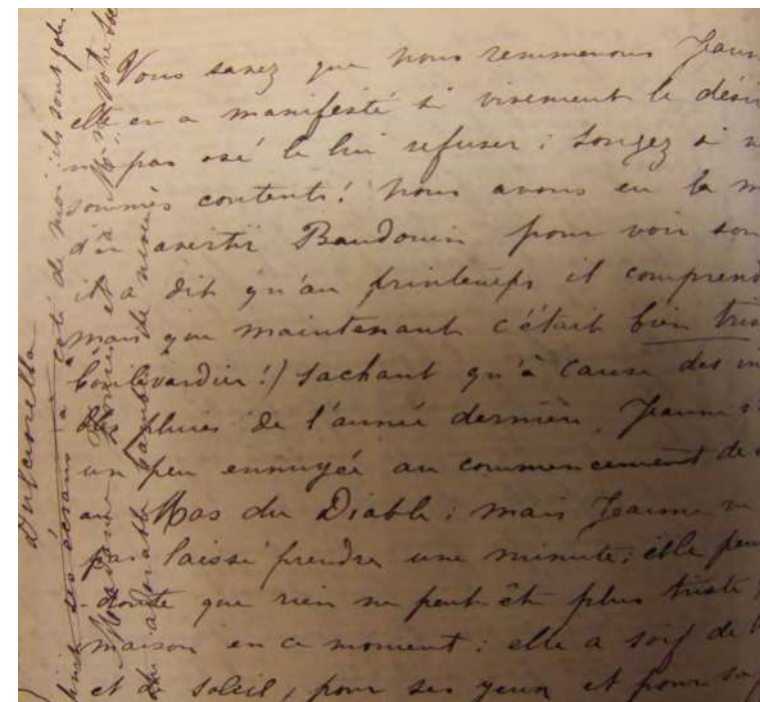 Vous savez que nous remmenons Jeanne
elle en a manifesté si vivement le désir
pas osé le lui refuser ; songez si n
sommes contents ! nous avons eu la m
d'en avertir Baudouin pour voir son
il a dit qu'au printemps il comprend
mais que maintenant c'était bien tris
boulevardier !) sachant qu'à cause des in
des pluies de l'année dernière, Jeanne s'
un peu ennuyée au commencement de s
au Mas du Diable ; mais Jeanne ne
pas laissé prendre une minute ; elle pen
doute que rien ne peut être plus triste
maison en ce moment ; elle a soif de
et de soleil, pour ses yeux et pour
Dulcinella
ses écrans à côté de moi ; ils sont jolis
Madame et à Mr votre
adorable de neveu